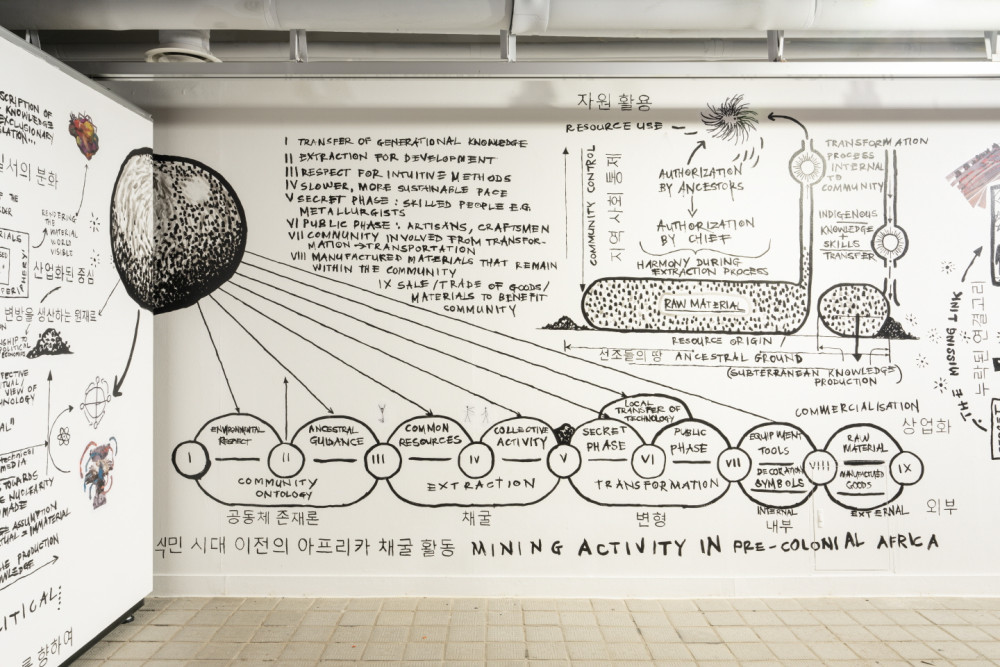 SCRIPTION OF
KNOWLEDGE
EXCLUSIONARY
LATION...
질서의 분화
RENDERING
THE
MATERIAL
WORLD
VISIBLE
산업화된 중심
변방을 생산하는 원재료
VIEW OF
MEDIA
TOWARDS
NUCLEARITY
MADE
ASSUMPTION
IMMATERIAL
PRODUCTION
ITICAL...
를 향하여
I TRANSFER OF GENERATIONAL KNOWLEDGE
II EXTRACTION FOR DEVELOPMENT
III RESPECT FOR INTUITIVE METHODS
IV SLOWER, MORE SUSTAINABLE PACE
V SECRET PHASE: SKILLED PEOPLE E.G.
METALLURGISTS
VI PUBLIC PHASE: ARTISANS, CRAFTSMEN
VII COMMUNITY INVOLVED FROM TRANSFOR-
MATION → TRANSPORTATION
VIII MANUFACTURED MATERIALS THAT REMAIN
WITHIN THE COMMUNITY
IX SALE/TRADE OF GOODS/
MATERIALS TO BENEFIT
COMMUNITY
자원 활용
RESOURCE USE
COMMUNITY CONTROL
지역 사회의 통제
AUTHORIZATION
BY ANCESTORS
AUTHORIZATION
BY CHIEF
HARMONY DURING
EXTRACTION PROCESS
RAW MATERIAL
TRANSFORMATION
PROCESS
INTERNAL
TO
COMMUNITY
INDIGENOUS
KNOWLEDGE
+
SKILLS
TRANSFER
RESOURCE ORIGIN /
선조들의 땅 ANCESTRAL GROUND
(SUBTERRANEAN KNOWLEDGE)
PRODUCTION
THE MISSING LINK
누락된 연결고리
COMMERCIALISATION
상업화
I
ENVIRONMENTAL
RESPECT
II
ANCESTRAL
GUIDANCE
COMMUNITY
ONTOLOGY
III
COMMON
RESOURCES
IV
COLLECTIVE
ACTIVITY
EXTRACTION
V
LOCAL
TRANSFER OF
TECHNOLOGY
SECRET
PHASE
VI
PUBLIC
PHASE
TRANSFORMATION
VII
EQUIPMENT
TOOLS
DECORATION
SYMBOLS
VIII
RAW
MATERIAL
MANUFACTURED
GOODS
IX
INTERNAL
EXTERNAL
공동체 존재론
채굴
변형
내부
외부
식민 시대 이전의 아프리카 채굴 활동 MINING ACTIVITY IN PRE-COLONIAL AFRICA